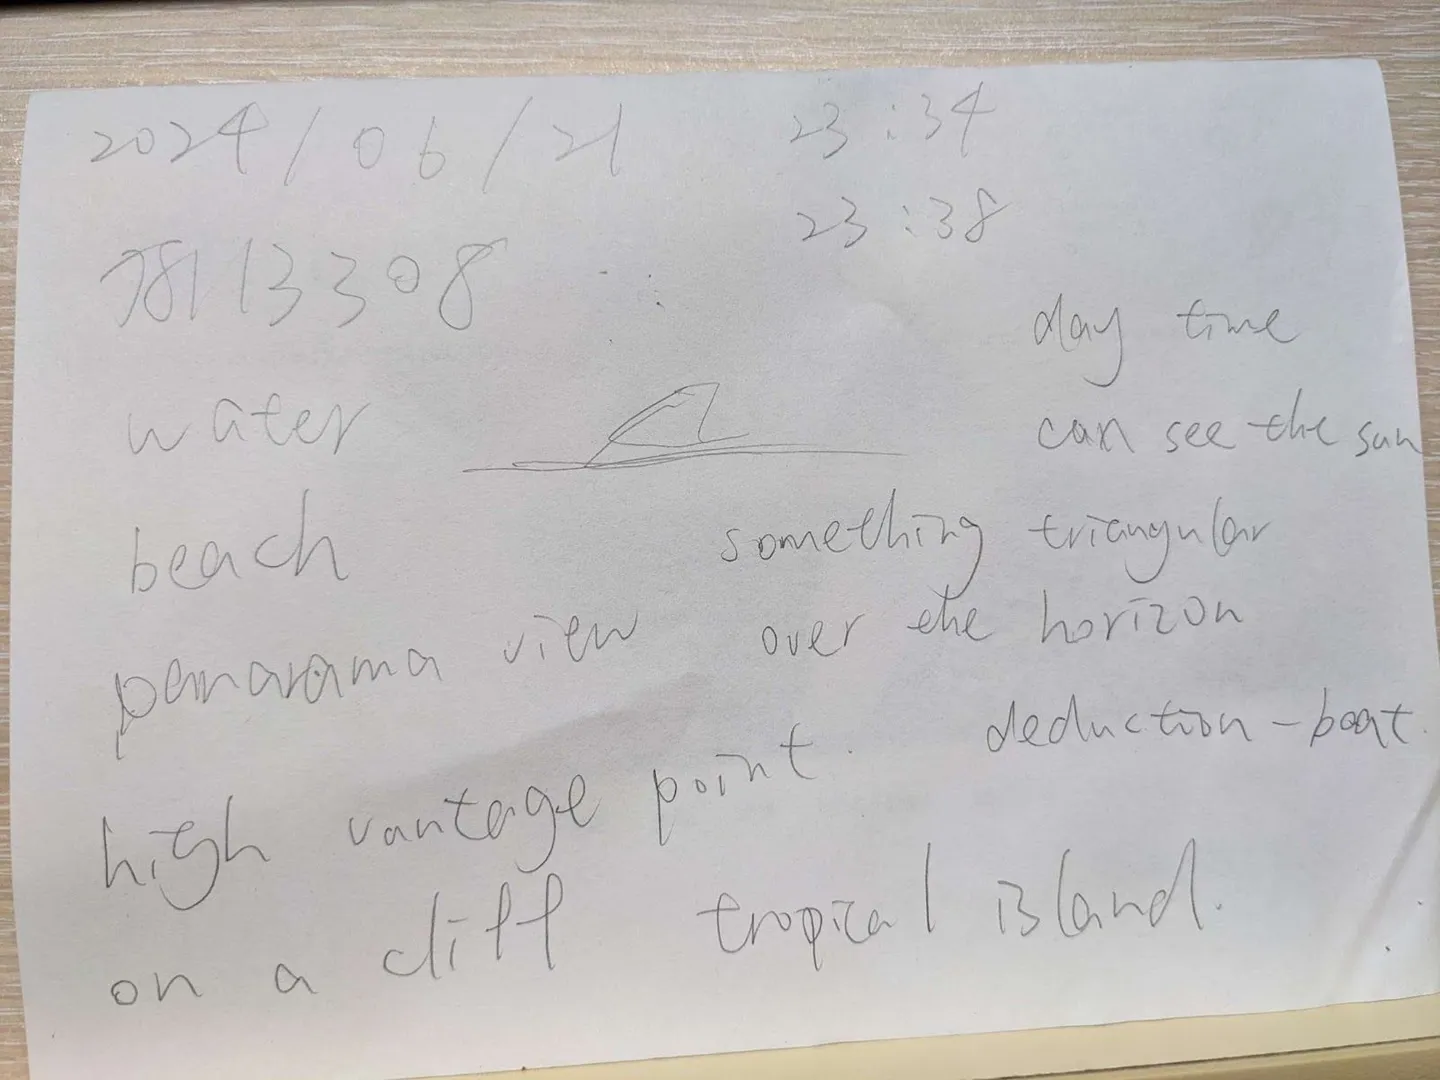 2024/06/21
23:34
23:38
78113308
water
beach
panarama view
high vantage point.
on a cliff
day time
can see the sun
something triangular
over the horizon
deduction-boat.
tropical island.